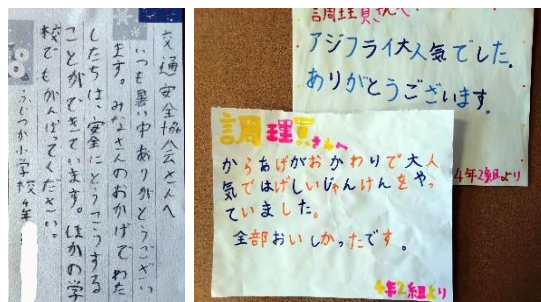 交通安全協会さんへ
いつも暑い中ありがとうござい
ます。みなさんのおかげでわた
したちは、安全にとうこうする
ことができています。ほかの学
校でもがんばってください。
小学校 4年
調理員さんへ
アジフライ大人気でした。
ありがとうございます。
4年2組より
調理員さんへ
からあげがおかわりで大人
気ではげしいじゃんけんをやっ
ていました。
全部おいしかったです。
4年2組より